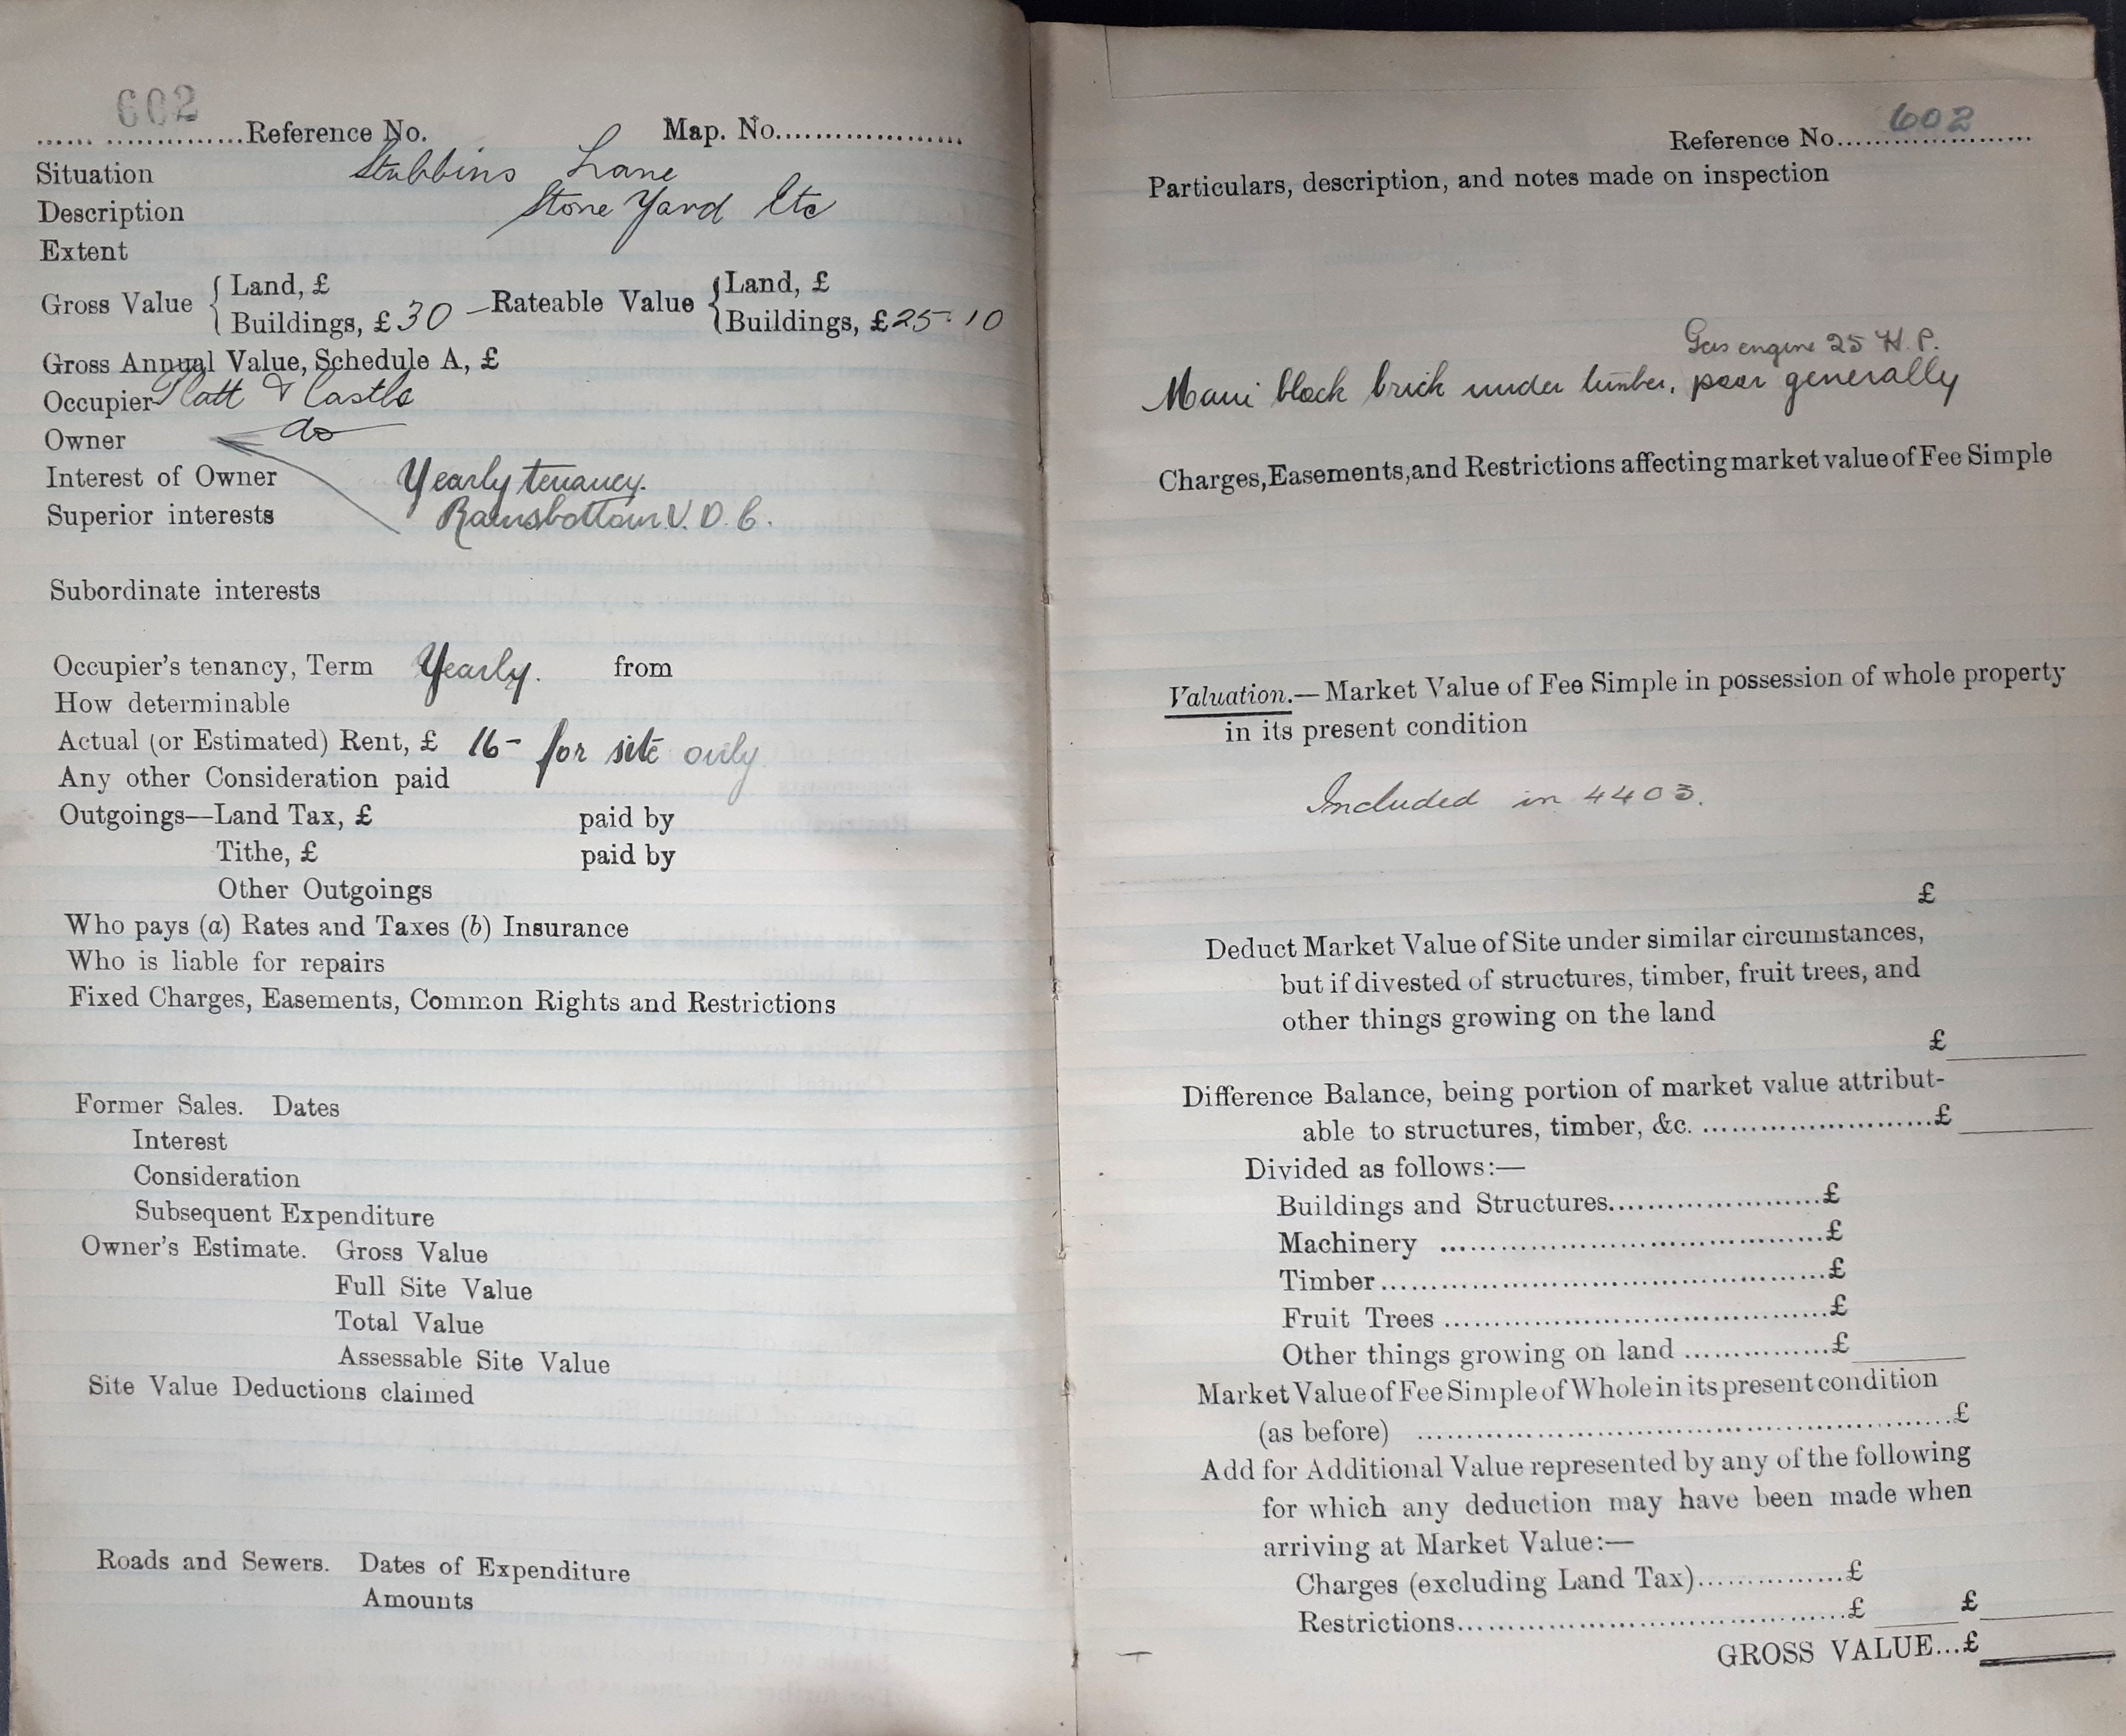 602
...... ..............Reference No. Map. No....................
Situation Stubbins Lane
Description Stone Yard Etc
Extent
Gross Value { Land, £
Buildings, £ 30 - Rateable Value { Land, £
Buildings, £ 25-10
Gross Annual Value, Schedule A, £
Occupier Platt & Castle
Owner do
Interest of Owner Yearly tenancy.
Superior interests Ramsbottom U. D. C.
Subordinate interests
Occupier's tenancy, Term Yearly. from
How determinable
Actual (or Estimated) Rent, £ 16- for site only
Any other Consideration paid
Outgoings—Land Tax, £ paid by
Tithe, £ paid by
Other Outgoings
Who pays (a) Rates and Taxes (b) Insurance
Who is liable for repairs
Fixed Charges, Easements, Common Rights and Restrictions
Former Sales. Dates
Interest
Consideration
Subsequent Expenditure
Owner's Estimate. Gross Value
Full Site Value
Total Value
Assessable Site Value
Site Value Deductions claimed
Roads and Sewers. Dates of Expenditure
Amounts
Reference No. 602
Particulars, description, and notes made on inspection
Gas engine 25 H.P.
Main block brick under timber, poor generally
Charges, Easements, and Restrictions affecting market value of Fee Simple
Valuation.—Market Value of Fee Simple in possession of whole property
in its present condition
Included in 4403.
£
Deduct Market Value of Site under similar circumstances,
but if divested of structures, timber, fruit trees, and
other things growing on the land
£
Difference Balance, being portion of market value attribut-
able to structures, timber, &c. ..........................£
Divided as follows:—
Buildings and Structures.......................£
Machinery ..........................................£
Timber................................................£
Fruit Trees .........................................£
Other things growing on land ................£
Market Value of Fee Simple of Whole in its present condition
(as before) ..........................................................£
Add for Additional Value represented by any of the following
for which any deduction may have been made when
arriving at Market Value:—
Charges (excluding Land Tax)................£
Restrictions..........................................£ £
GROSS VALUE...£